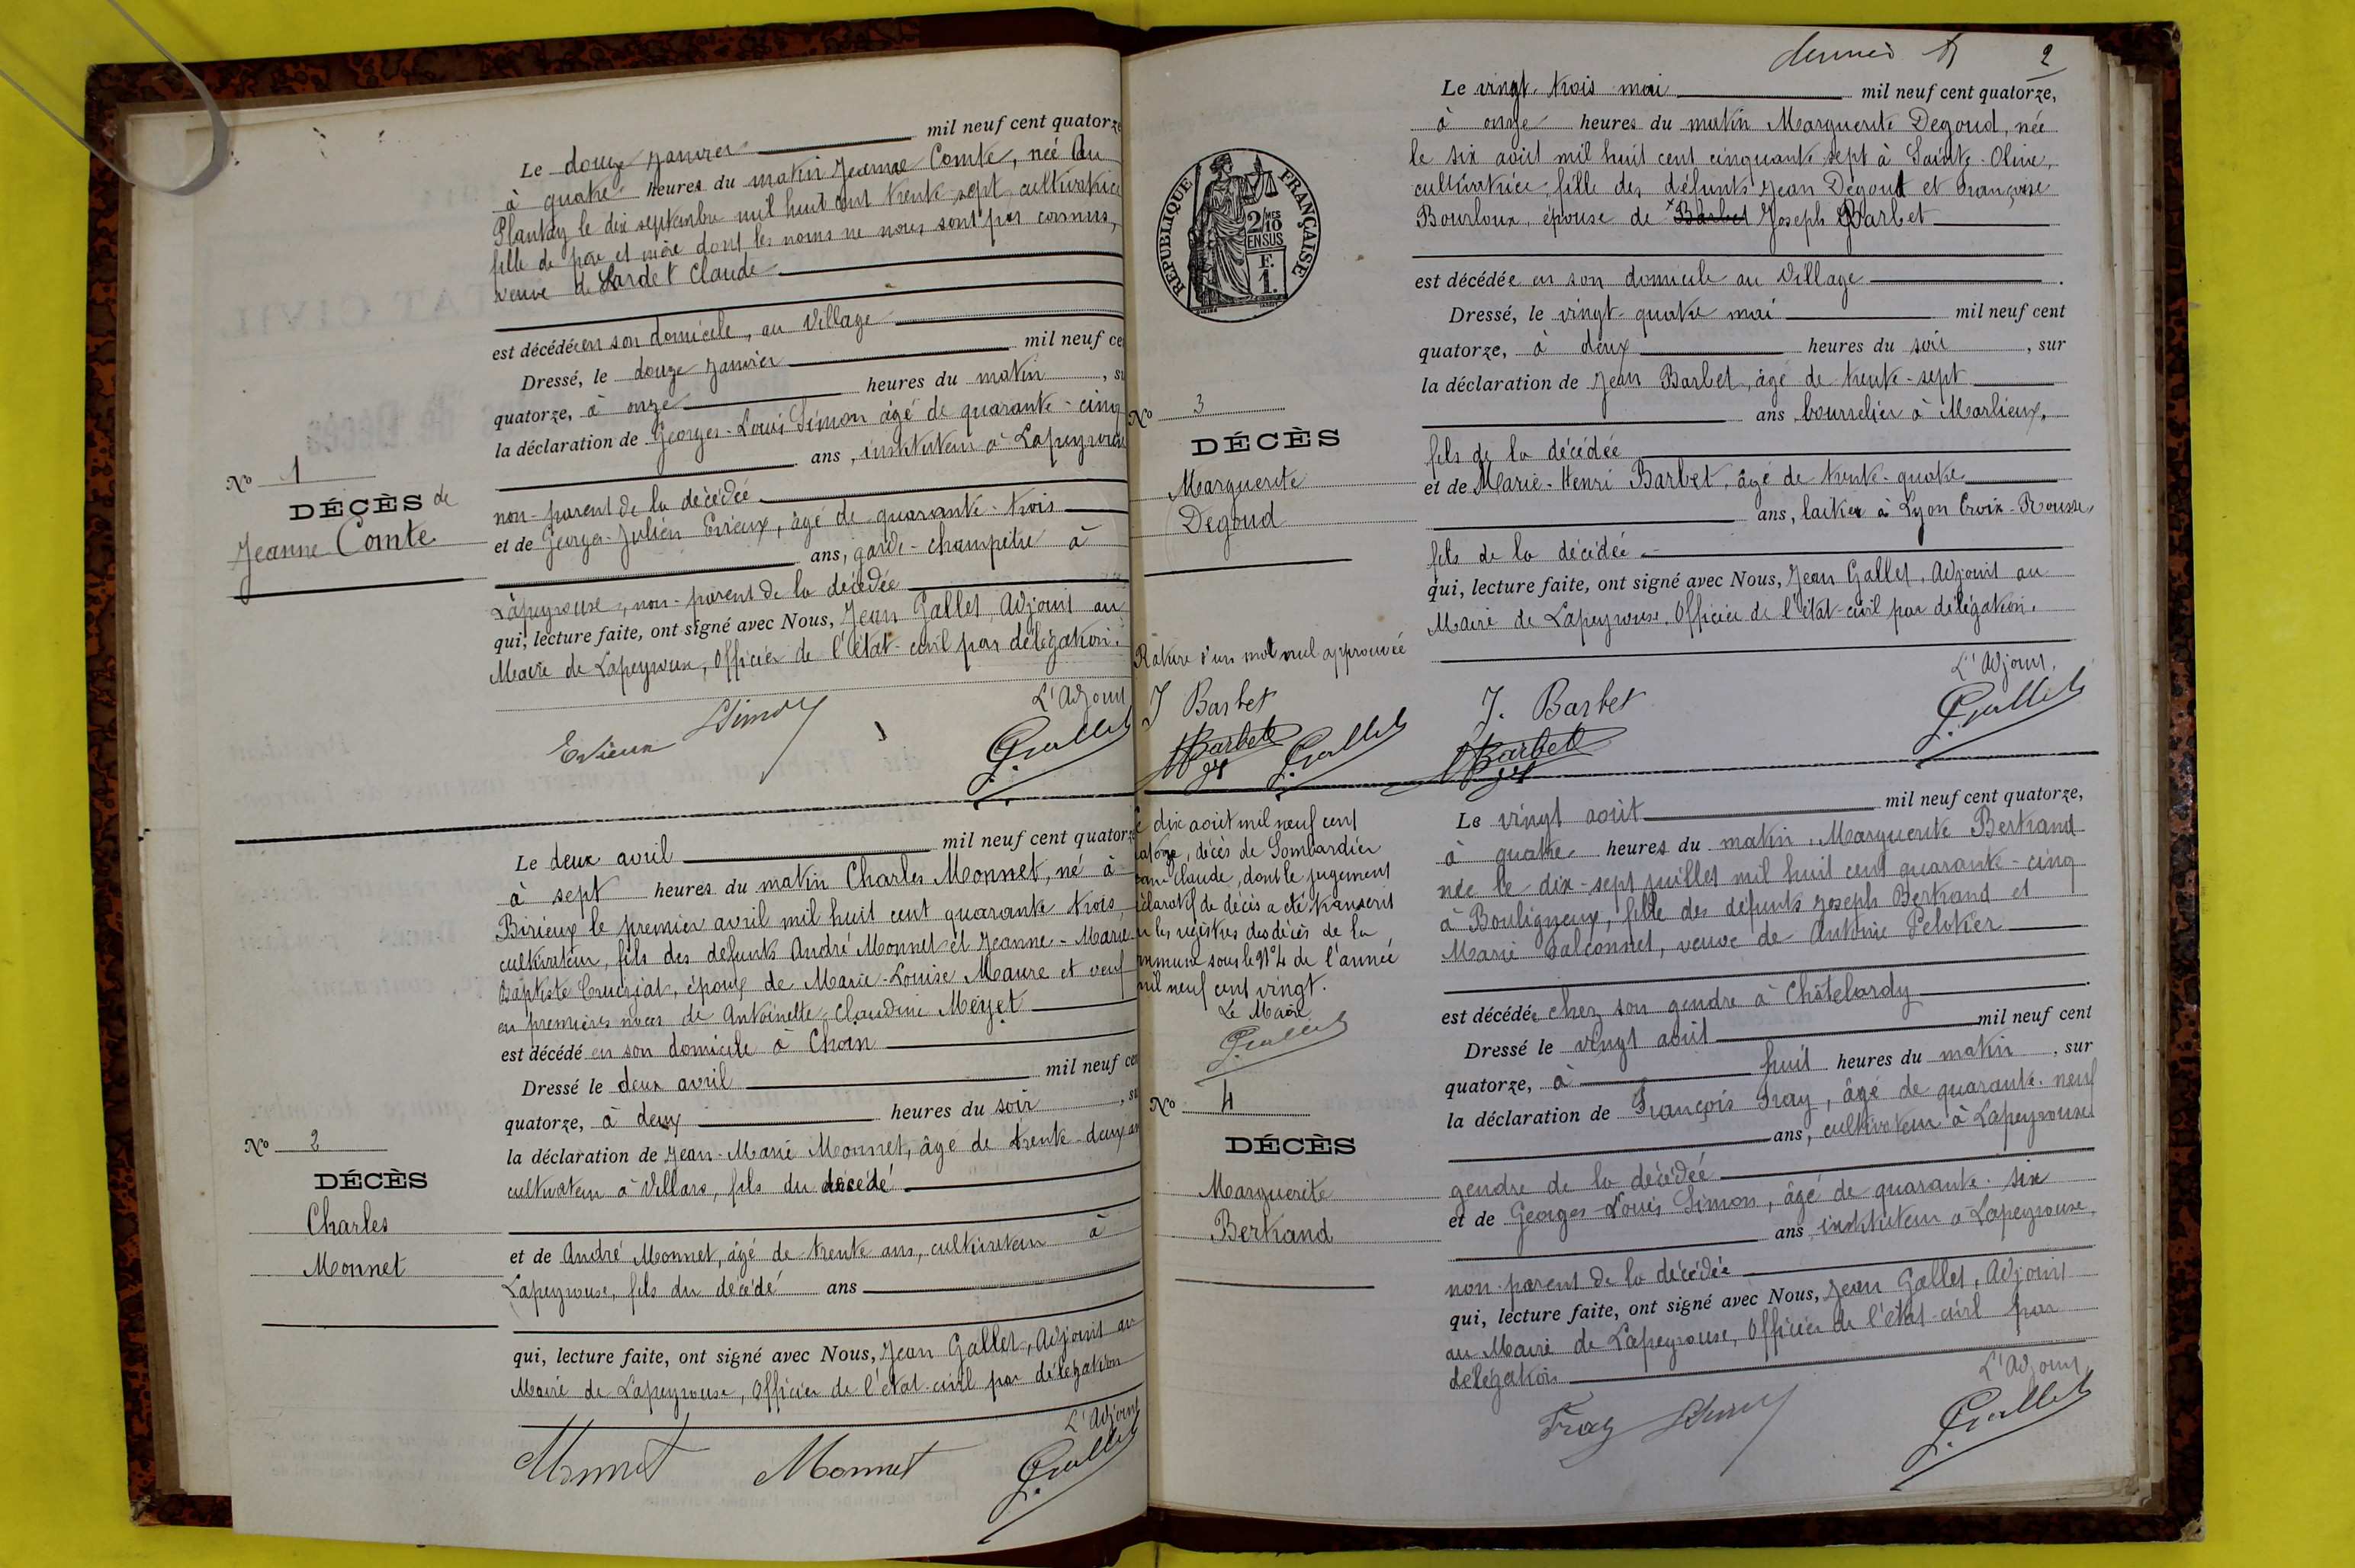 Le douze janvier mil neuf cent quatorze
à quatre heures du matin Jeanne Comte, née au
Plantay le dix septembre mil huit cent trente sept, cultivatrice
fille de père et mère dont les noms ne nous sont pas connus,
veuve de Lardet Claude
est décédée en son domicile, au Village
Dressé, le douze janvier mil neuf ce
quatorze, à onze heures du matin, su
la déclaration de Georges-Louis Simon âgé de quarante-cinq
ans, instituteur à Lapeyrouse
Nº 1
DÉCÈS de
Jeanne Comte
non-parent de la décédée
et de Georges-Julien Evieux, âgé de quarante-trois
ans, garde-champêtre à
Lapeyrouse, non-parent de la décédée
qui, lecture faite, ont signé avec Nous, Jean Gallet, Adjoint au
Maire de Lapeyrouse, Officier de l'état-civil par délégation.
L'Adjoint
Evieux Simon J. Gallet
Le deux avril mil neuf cent quatorze
à sept heures du matin Charles Monnet, né à
Birieux le premier avril mil huit cent quarante trois,
cultivateur, fils des défunts André Monnet et Jeanne-Marie
Baptiste Cruizjat, époux de Marie-Louise Maure et veuf
en premières noces de Antoinette-Claudine Meyet
est décédé en son domicile à Choin
Dressé le deux avril mil neuf ce
quatorze, à deux heures du soir, su
la déclaration de Jean-Marie Monnet, âgé de trente-deux ans
cultivateur à Villars, fils du décédé
Nº 2
DÉCÈS
Charles
Monnet
et de André Monnet, âgé de trente ans, cultivateur à
Lapeyrouse, fils du décédé ans
qui, lecture faite, ont signé avec Nous, Jean Gallet, Adjoint au
Maire de Lapeyrouse, Officier de l'état-civil par délégation
L'Adjoint
Monnet Monnet J. Gallet
2
RÉPUBLIQUE FRANÇAISE
2/10 MES
EN SUS
F.
1.
Le vingt-trois mai mil neuf cent quatorze,
à onze heures du matin Marguerite Degoud, née
le six août mil huit cent cinquante sept à Sainte-Olive,
cultivatrice, fille des défunts Jean Degoud et Françoise
Bourloux, épouse de Barbet Joseph Barbet
est décédée en son domicile au Village
Dressé, le vingt-quatre mai mil neuf cent
quatorze, à deux heures du soir, sur
la déclaration de Jean Barbet, âgé de trente-sept
ans bourrelier à Marlieux,
Nº 3
DÉCÈS
Marguerite
Degoud
fils de la décédée
et de Marie-Henri Barbet, âgé de trente-quatre
ans, laitier à Lyon Croix-Rousse,
fils de la décédée
qui, lecture faite, ont signé avec Nous, Jean Gallet, Adjoint au
Maire de Lapeyrouse, Officier de l'état-civil par délégation.
Rature d'un mot nul approuvée
J Barbet
Barbet J. Gallet
L'Adjoint,
J. Barbet J. Gallet
Barbet
Le dix août mil neuf cent
quatorze, décès de Gombardier
Claude, dont le jugement
déclaratif de décès a été transcrit
les régistres des décès de la
commune sous le Nº 4 de l'année
mil neuf cent vingt.
Le Maire,
J. Gallet
Nº 4
DÉCÈS
Marguerite
Bertrand
Le vingt août mil neuf cent quatorze,
à quatre heures du matin, Marguerite Bertrand
née le dix-sept juillet mil huit cent quarante-cinq
à Bouligneux, fille des défunts Joseph Bertrand et
Marie Falconnet, veuve de Antoine Pelotier
est décédée chez son gendre à Châtelardy
Dressé le vingt août mil neuf cent
quatorze, à huit heures du matin, sur
la déclaration de François Fray, âgé de quarante-neuf
ans, cultivateur à Lapeyrouse
gendre de la décédée
et de Georges-Louis Simon, âgé de quarante-six
ans instituteur à Lapeyrouse,
non-parent de la décédée
qui, lecture faite, ont signé avec Nous, Jean Gallet, Adjoint
au Maire de Lapeyrouse, Officier de l'état-civil par
délégation
L'Adjoint,
Fray Simon J. Gallet